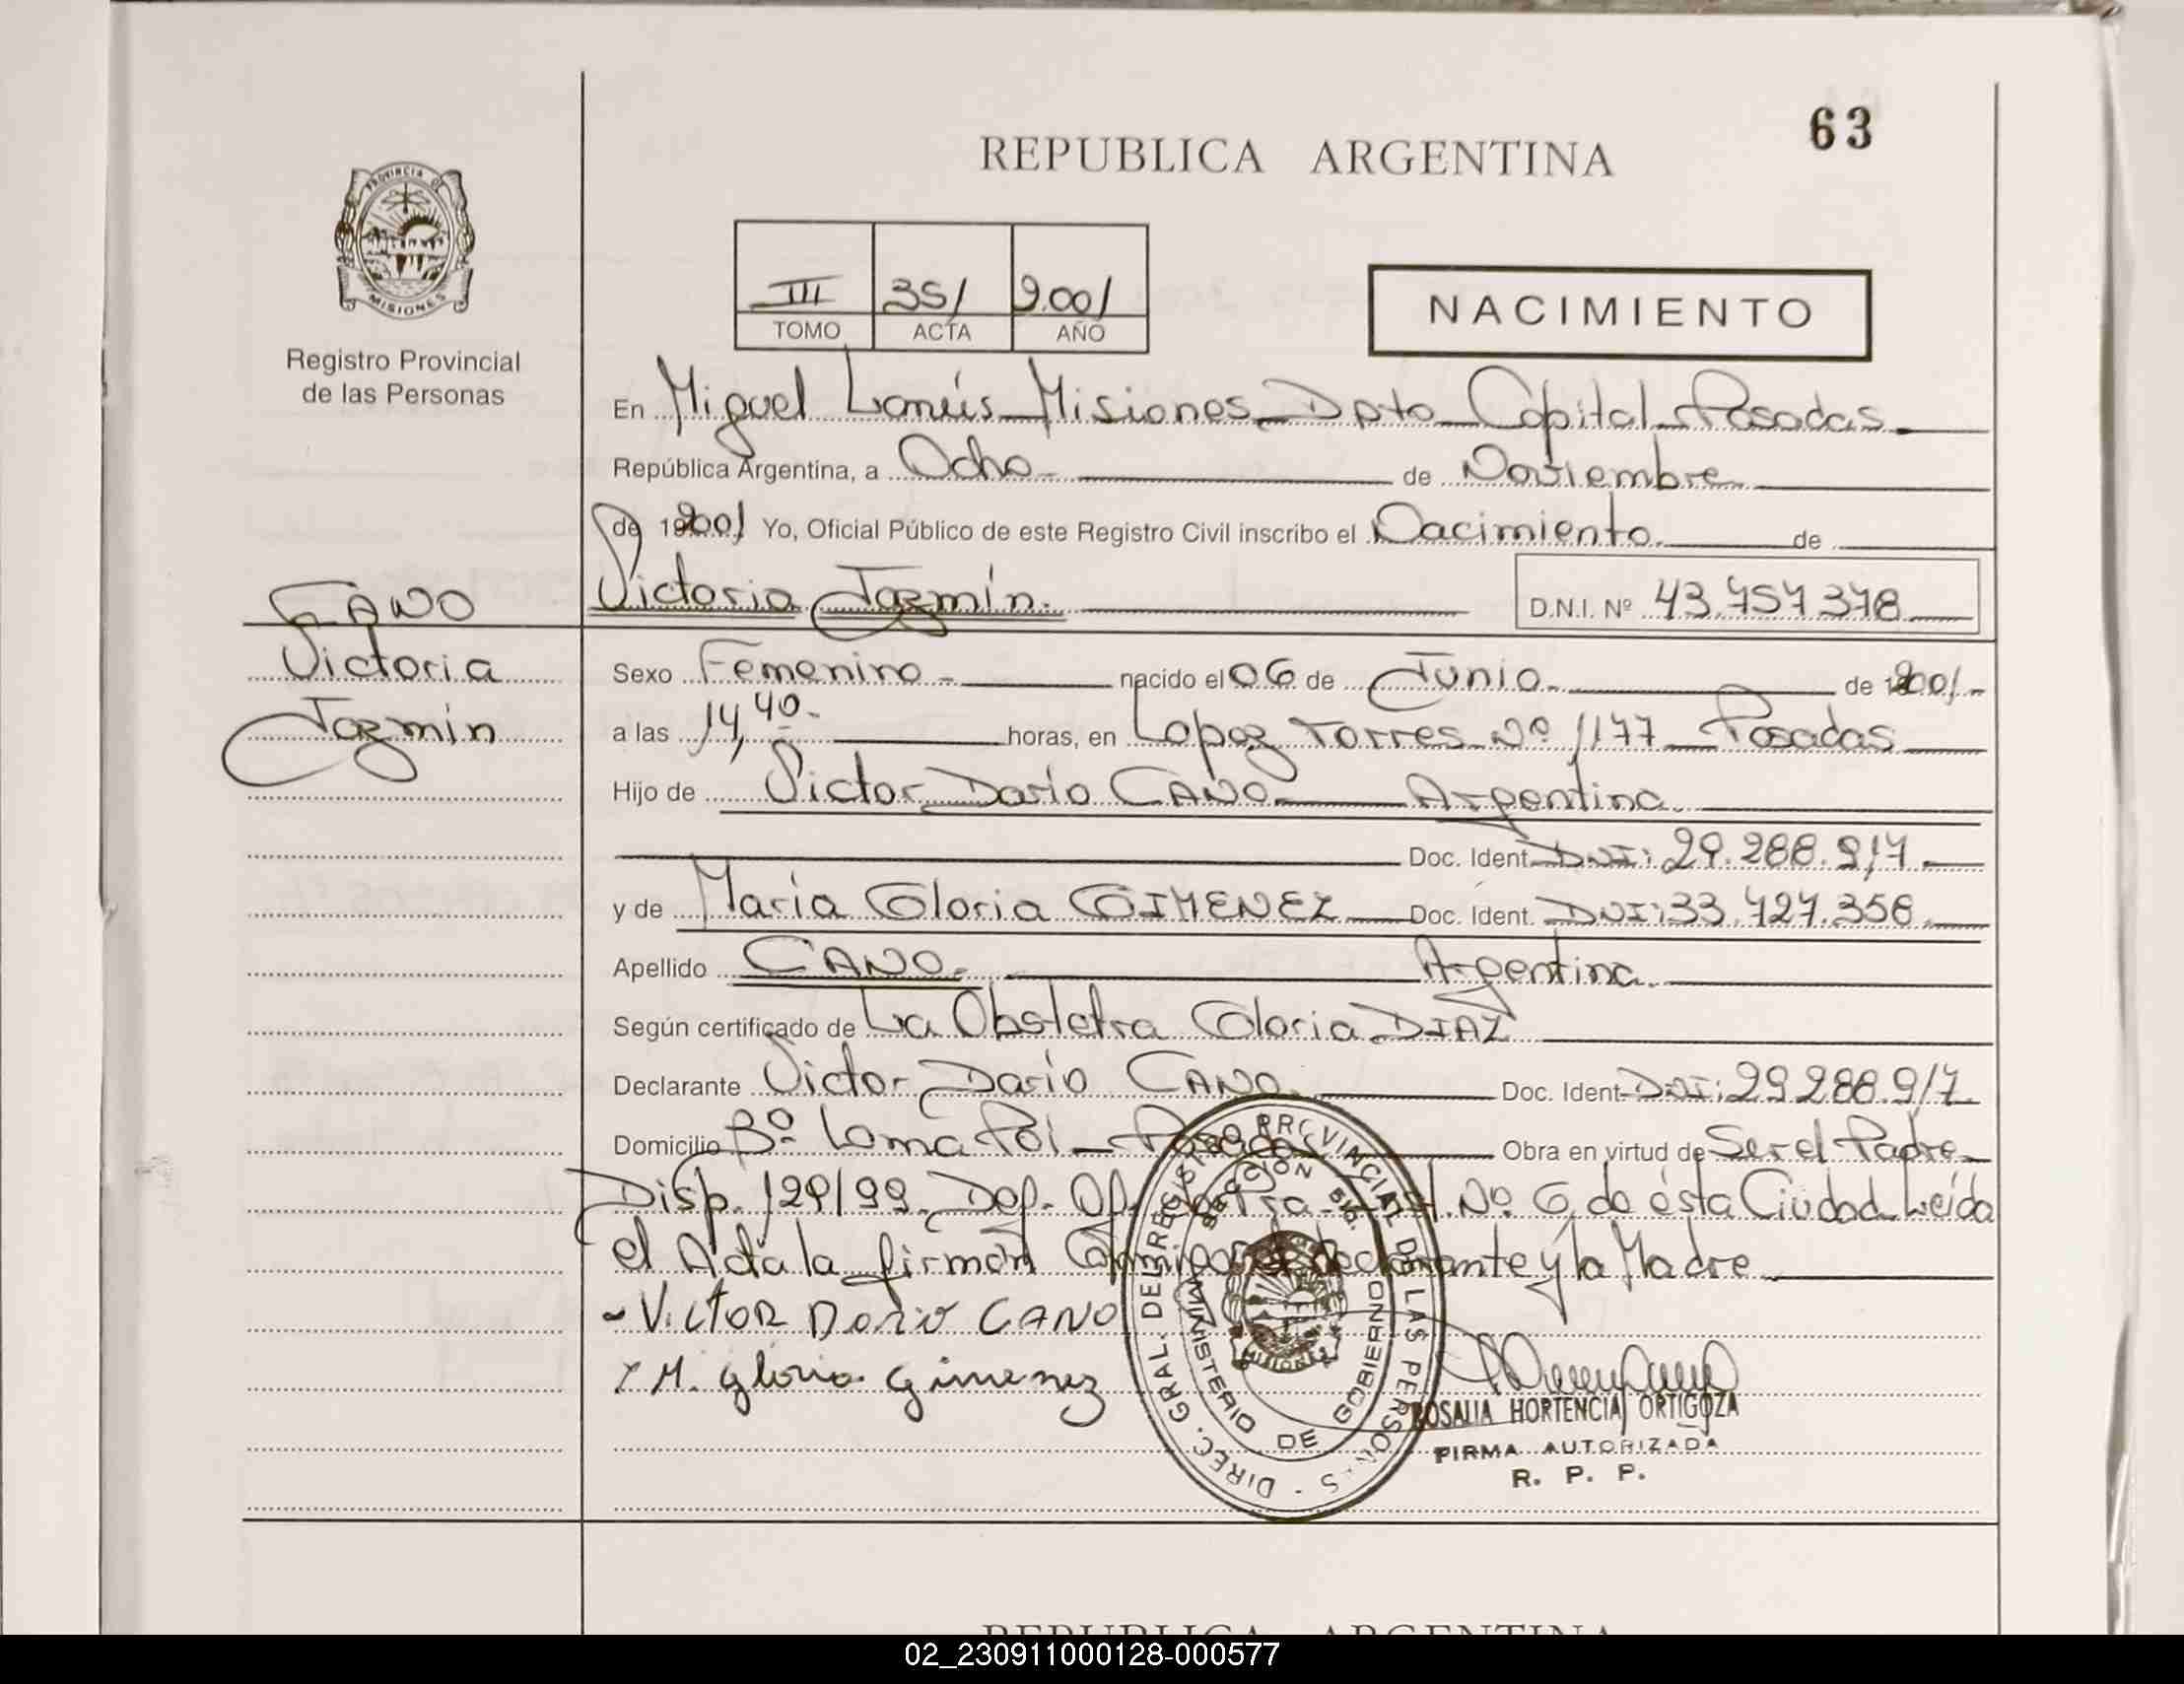 63
REPUBLICA ARGENTINA
PROVINCIA DE
MISIONES
Registro Provincial
de las Personas
III 351 2.001
TOMO ACTA AÑO
NACIMIENTO
En Miguel Lanús Misiones Dpto Capital Posadas
República Argentina, a Ocho de Noviembre
de 2001 Yo, Oficial Público de este Registro Civil inscribo el Nacimiento de
Victoria Jazmín. D.N.I. Nº 43.757.378
CANO
Victoria
Jazmín
Sexo Femenino nacido el 06 de Junio de 2001
a las 14,40 horas, en Lopez Torres Nº 1177 Posadas
Hijo de Victor Darío CANO Argentina
Doc. Ident. DNI: 29.288.917
y de María Gloria GIMENEZ Doc. Ident. DNI: 33.427.356
Apellido CANO Argentina
Según certificado de La Obstetra Gloria DIAZ
Declarante Victor Darío CANO Doc. Ident. DNI: 29288.917
Domicilio Bº Loma Poi - Posadas Obra en virtud de Ser el Padre
Disp. 129/99 Nº 6 de ésta Ciudad Leída
el Acta la firman declarante y la Madre
- VICTOR Dario CANO
M. gloria gimenez
DIREC. GRAL. DEL REGISTRO PROVINCIAL DE LAS PERSONAS
MINISTERIO DE GOBIERNO
MISIONES
ROSALIA HORTENCIA ORTIGOZA
FIRMA AUTORIZADA
R. P. P.
REPUBLICA ARGENTINA
02_230911000128-000577